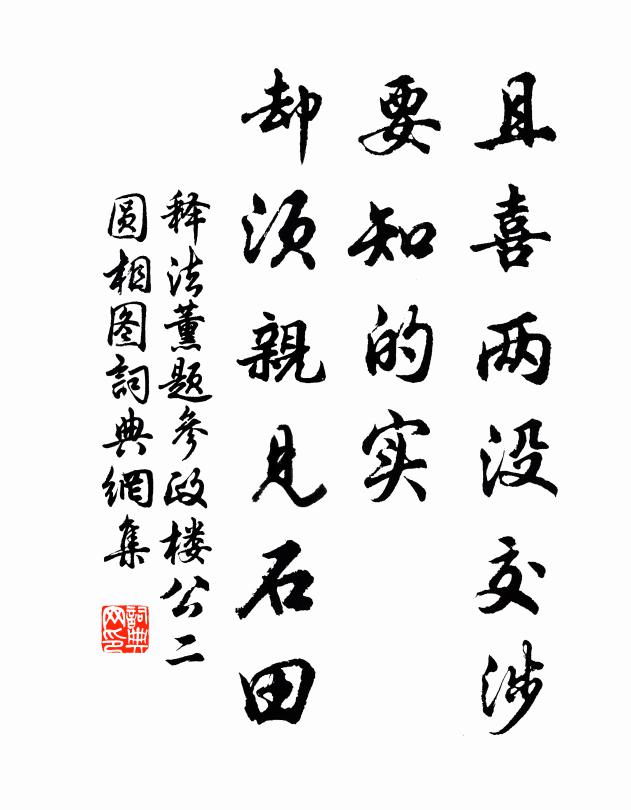 且喜两没交涉
要知的实
却须親见石田
释法薰题参政楼公二
圆相图詞典網集
詞典网印